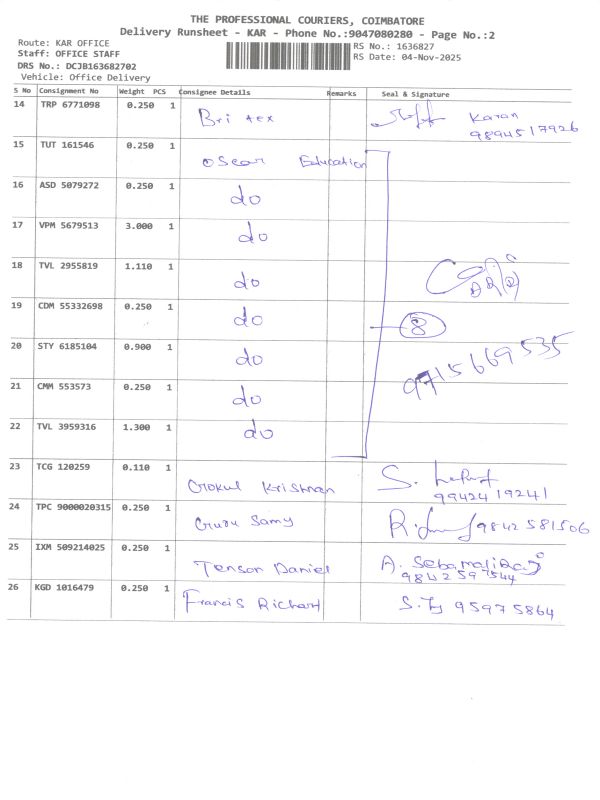 THE PROFESSIONAL COURIERS, COIMBATORE
Delivery Runsheet - KAR - Phone No.:9047080280 - Page No.:2
Route: KAR OFFICE
Staff: OFFICE STAFF
DRS No.: DCJB163682702
Vehicle: Office Delivery
RS No.: 1636827
RS Date: 04-Nov-2025
S No Consignment No Weight PCS Consignee Details Remarks Seal & Signature
14 TRP 6771098 0.250 1 Bri tex Karan
9894517926
15 TUT 161546 0.250 1 oscar Education
16 ASD 5079272 0.250 1 do
17 VPM 5679513 3.000 1 do
18 TVL 2955819 1.110 1 do
19 CDM 55332698 0.250 1 do
8
20 STY 6185104 0.900 1 do
9715669535
21 CMM 553573 0.250 1 do
22 TVL 3959316 1.300 1 do
23 TCG 120259 0.110 1 Gokul Krishnan S.
9942419241
24 TPC 9000020315 0.250 1 Guru Samy 9842581506
25 IXM 509214025 0.250 1 Tenson Daniel A. Sebamaliraj
9842597544
26 KGD 1016479 0.250 1 Francis Richart 95975864